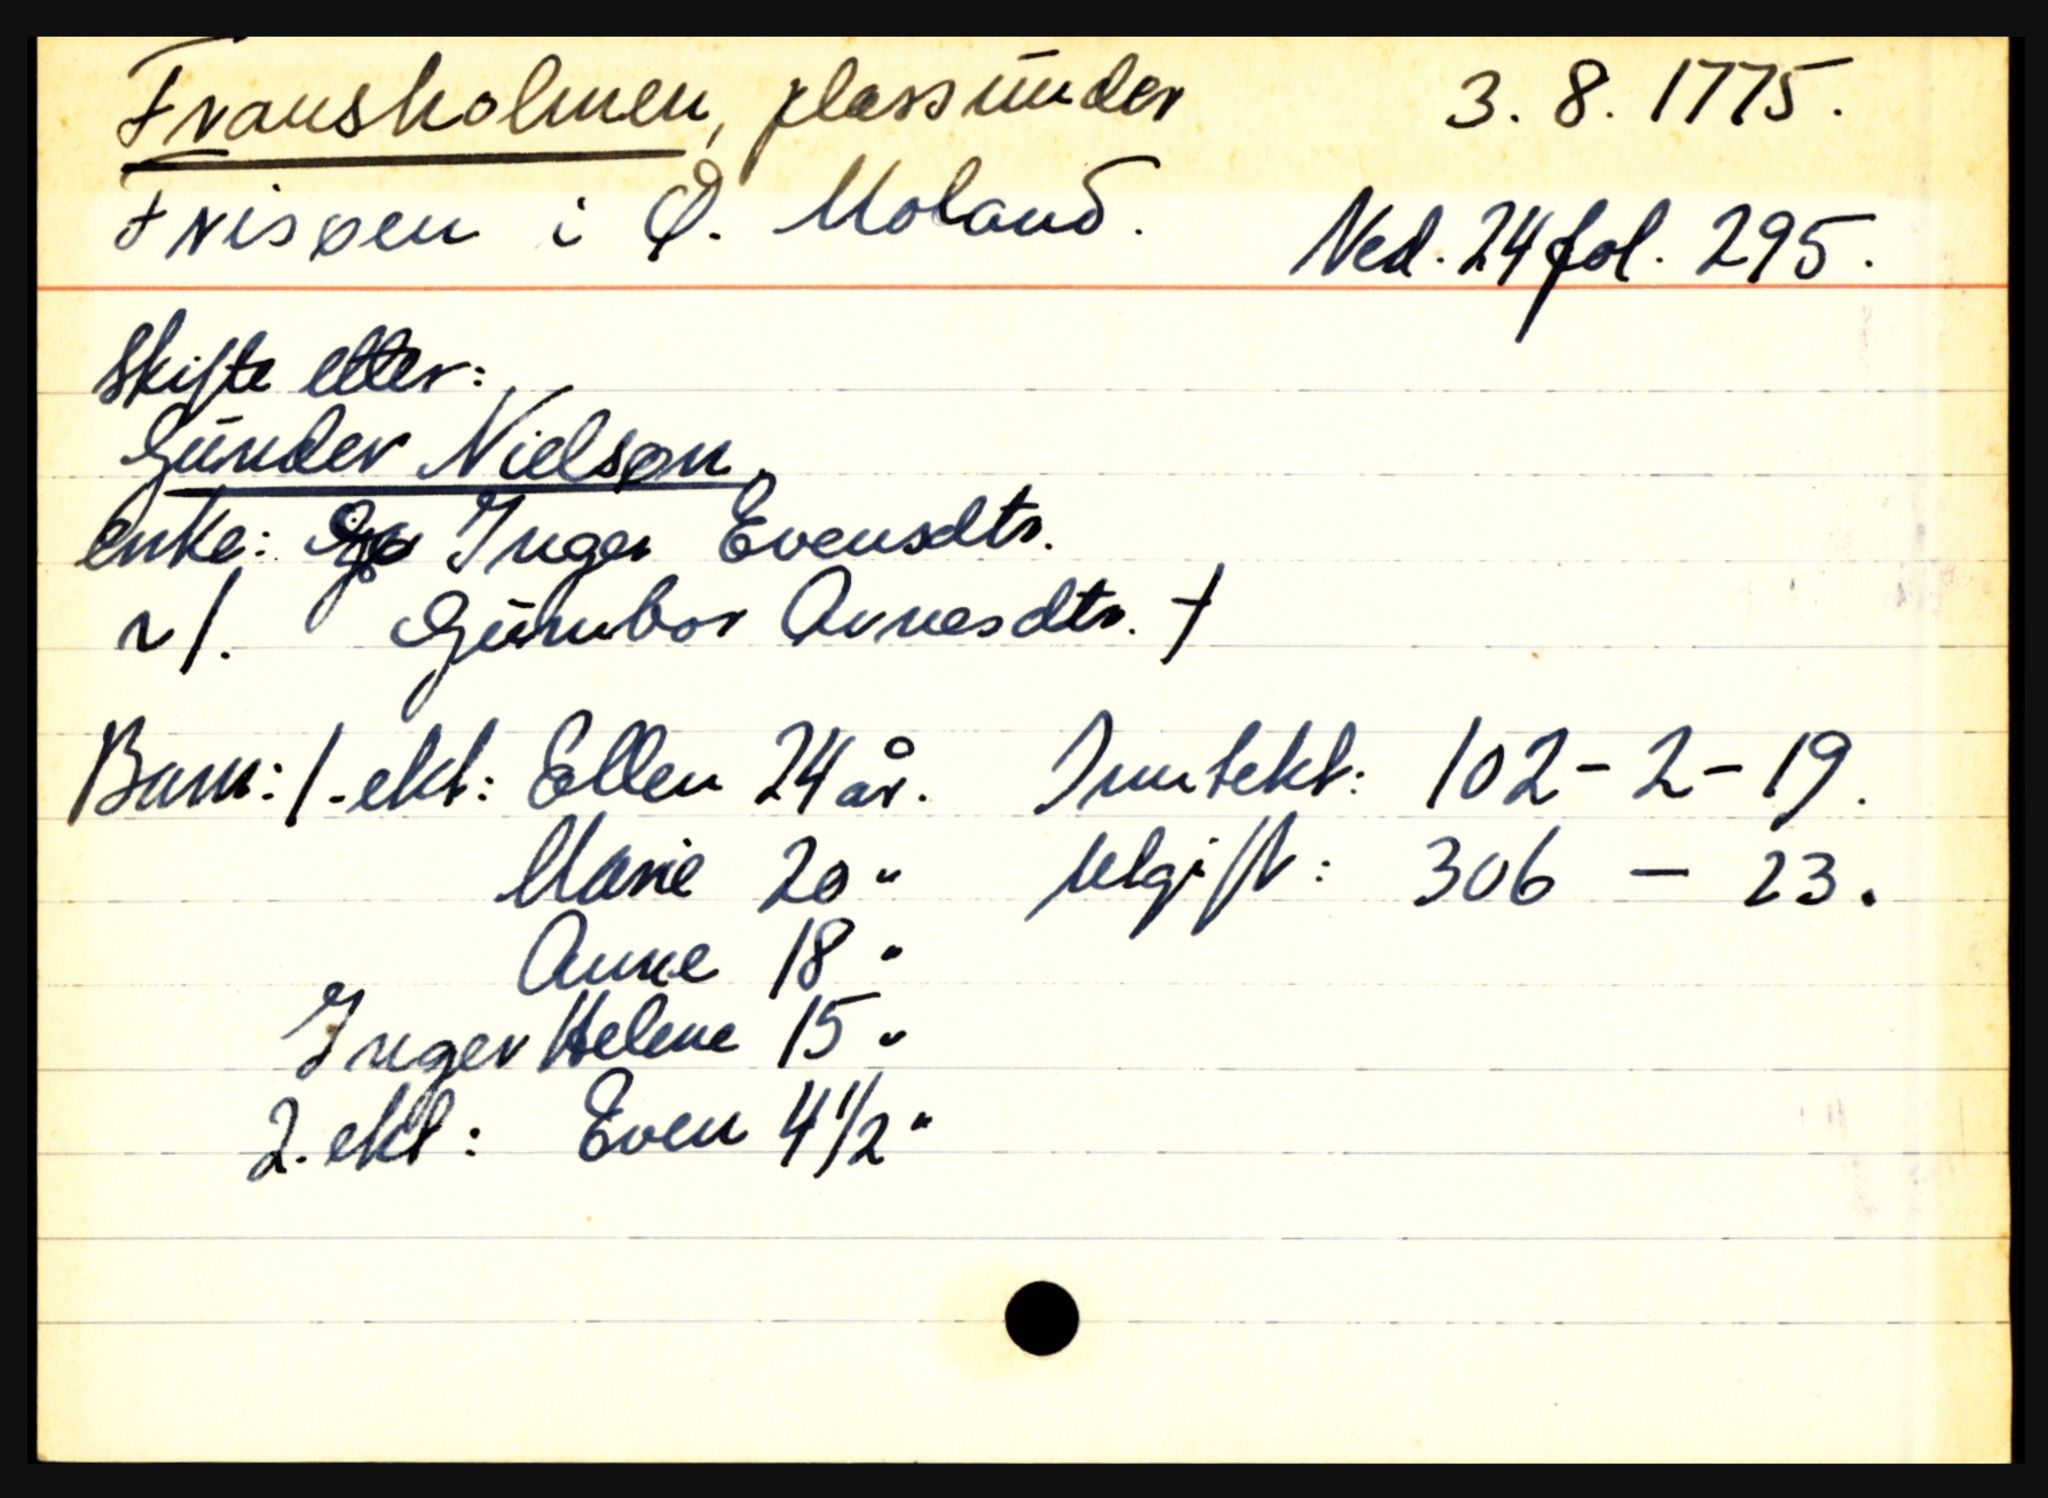 Fransholmen, plass under 3. 8. 1775.
Frisøen i Ø. Moland. Ned. 24 fol. 295.
Skifte etter:
Gunder Nielsøn.
enke: Inger Evensdtr.
v/. Gunbor Arnesdtr. †
Barn: 1. ekt: Ellen 24 år. Inntekt: 102 - 2 - 19.
Marie 20 " Utgift: 306 - 23.
Anne 18 "
Inger Helene 15 "
2. ekt: Even 4 1/2 "